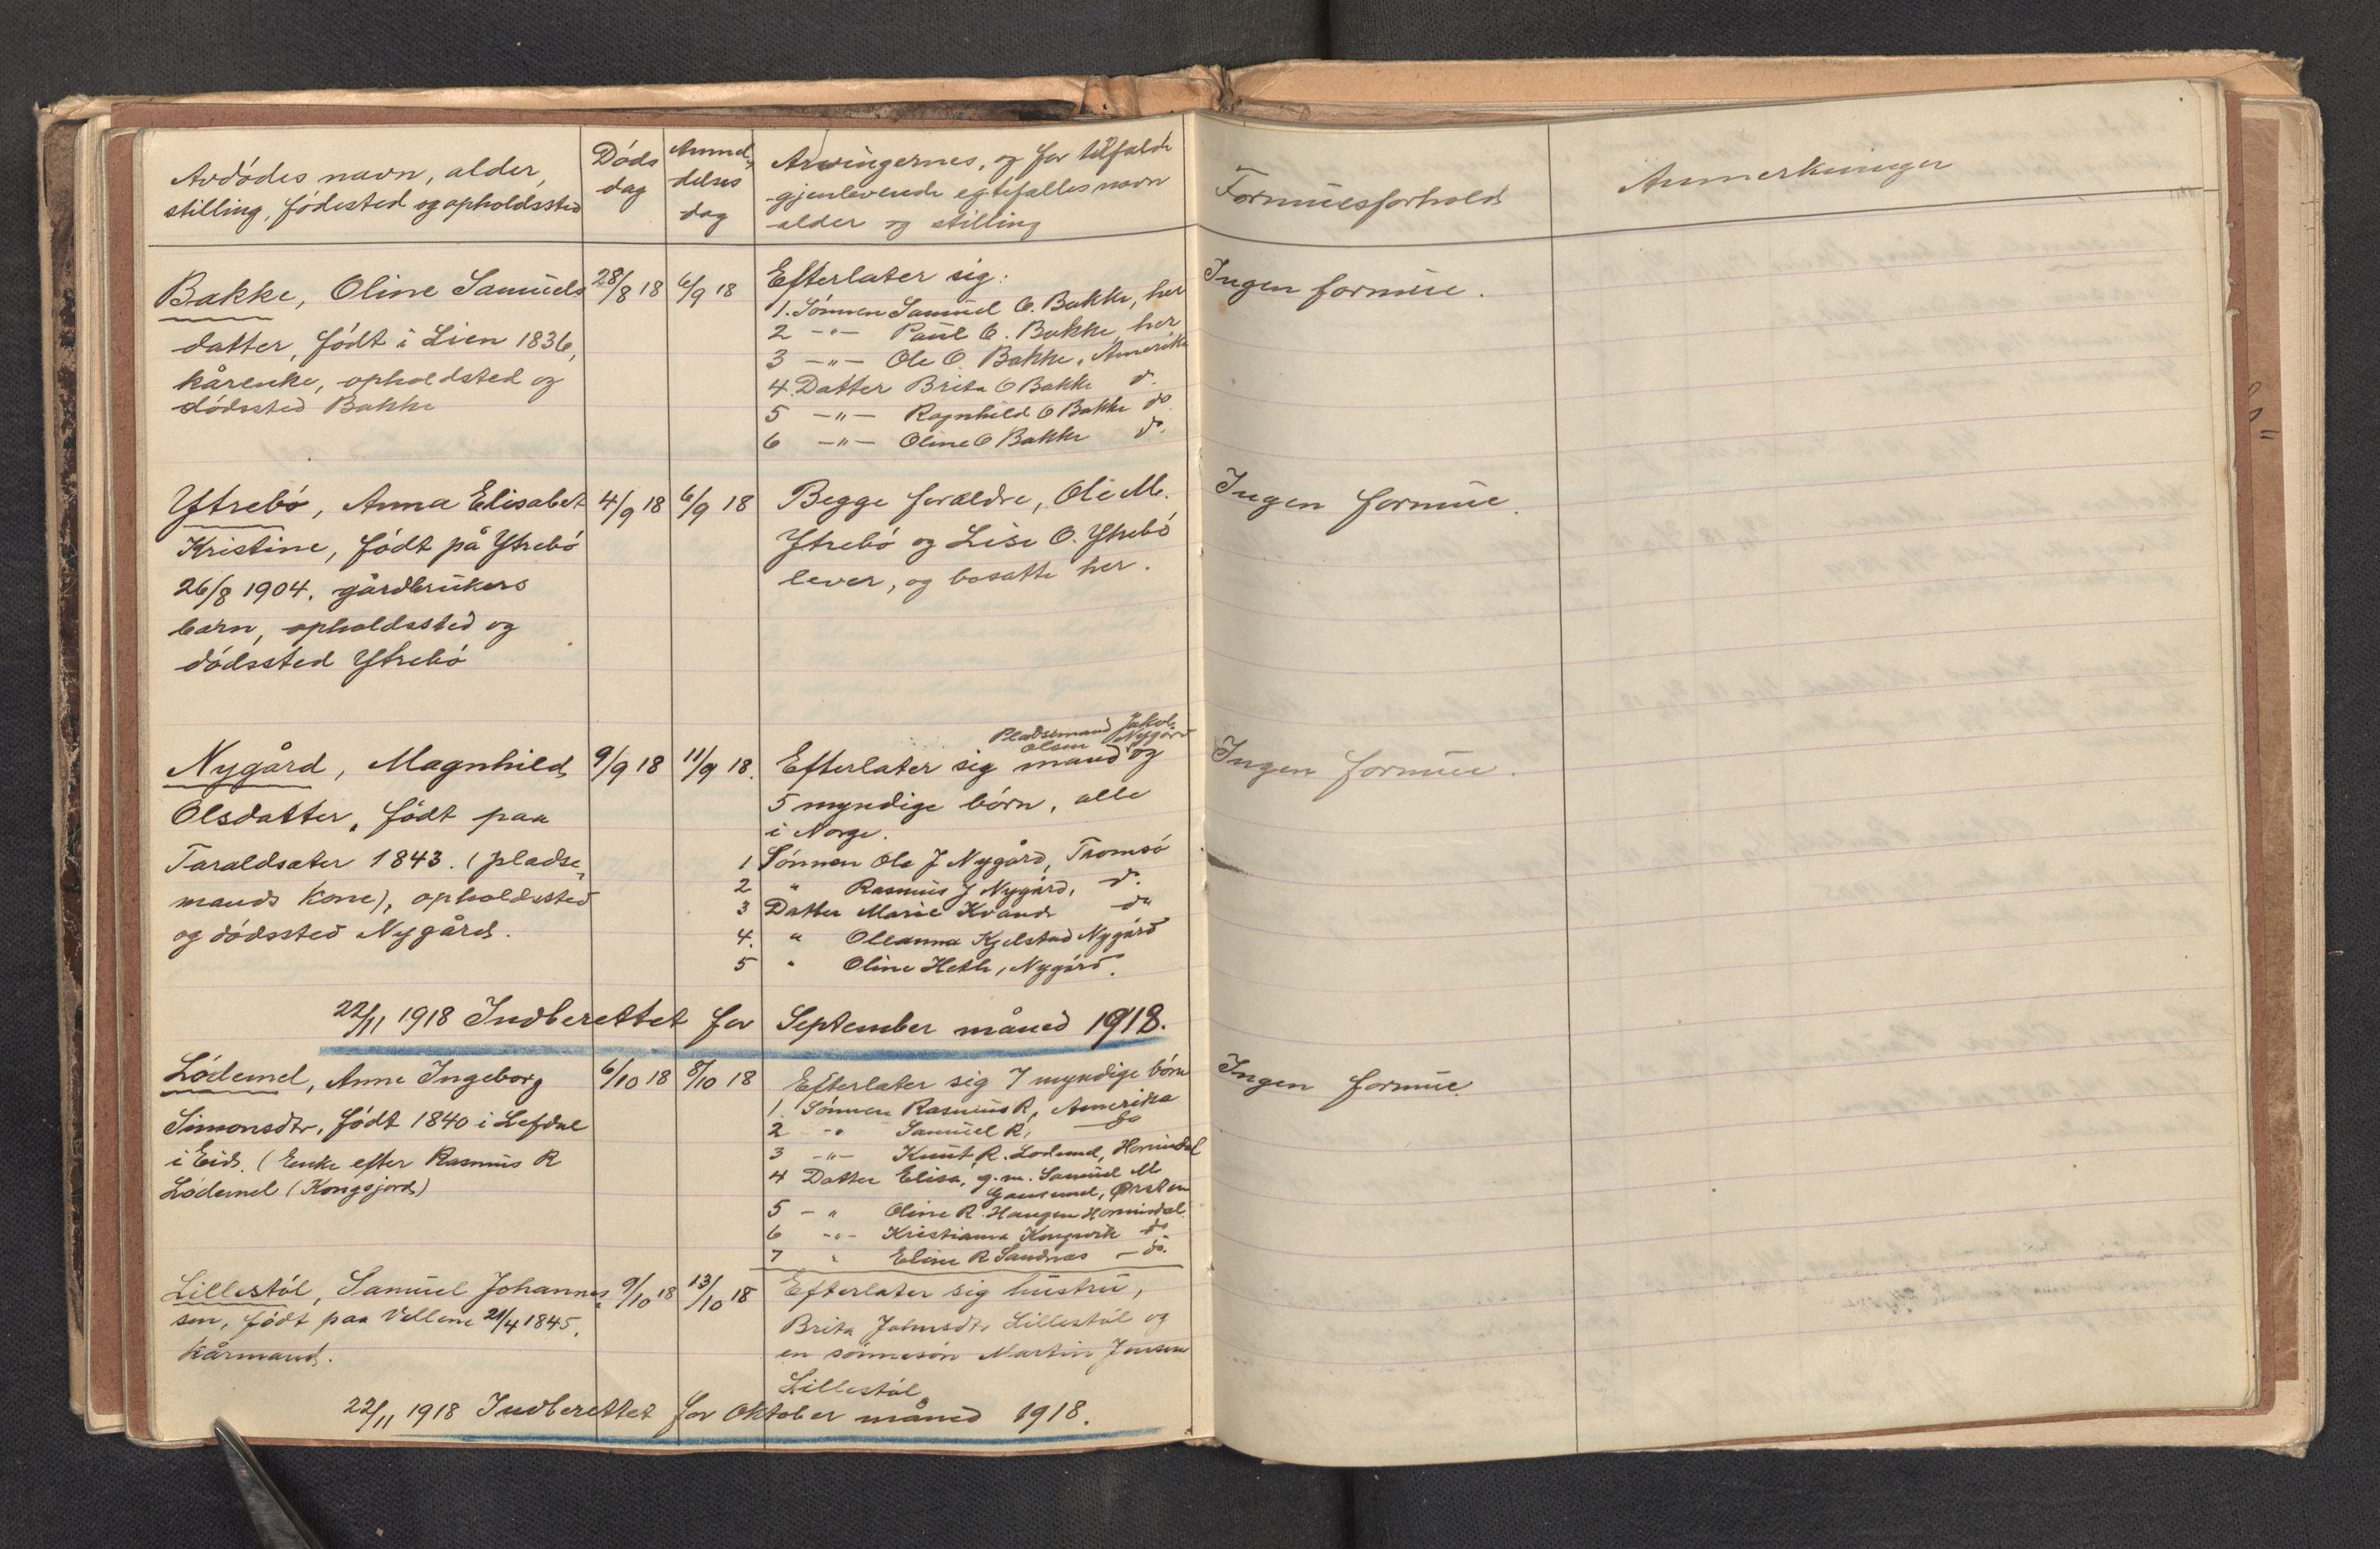 Avdødes navn, alder,
stilling, fødested og opholdssted
Døds
dag
Anmel-
delses
dag
Arvingernes, og for tilfælde
gjenlevende egtefælles navn
alder og stilling
Formuesforhold
Anmerkninger
Bakke, Oline Samuels
datter, født i Lien 1836,
kårenke, opholdsted og
dødssted Bakke
28/8 18
6/9 18
Efterlater sig:
1. Sønnen Samuel O. Bakke, her
2 -"- Paul O. Bakke, her
3 -"- Ole O. Bakke, Amerika
4. Datter Brita O Bakke do.
5 -"- Ragnhild O Bakke do
6 -"- Oline O Bakke do.
Ingen formue.
Ytrebø, Anna Elisabet
Kristine, født på Ytrebø
26/8 1904. gårdbrukers
barn, opholdssted og
dødssted Ytrebø
4/9 18
6/9 18
Begge forældre, Ole M.
Ytrebø og Lise O. Ytrebø
lever, og bosatte her.
Ingen formue.
Nygård, Magnhild
Olsdatter, født paa
Taraldsæter 1843. (pladse-
mands kone), opholdssted
og dødssted Nygård.
9/9 18
11/9 18.
Pladsmand Jakob
Olsen Nygård
Efterlater sig mand og
5 myndige børn, alle
i Norge.
1 Sønnen Ole J Nygård, Tromsø
2 " Rasmus J Nygård, do.
3 Datter Marie Kvand do
4. " Oleanna Kjelstad Nygård
5 " Oline Hetle, Nygård.
Ingen formue.
22/11 1918 Indberettet for September måned 1918.
Lødemel, Anne Ingeborg
Simonsdtr, født 1840 i Lefdal
i Eid. (Enke efter Rasmus R
Lødemel (Kongsjord)
6/10 18
8/10 18
Efterlater sig 7 myndige børn
1. Sønnen Rasmus R, Amerika
2 -" Samuel R, do
3 -"- Knut R. Lødemel, Hornindal
4 Datter Elisa, g.m. Samuel M
Gausemel, Ørsten
5 -" Oline R. Haugen Hornindal
6 -"- Kristianna Kongsvik do
7 " Eline R Sandnes - do.
Ingen formue.
Lillestøl, Samuel Johannes-
sen, født paa Vellene 21/4 1845.
Kårmand.
9/10 18
13/10 18
Efterlater sig hustru,
Brita Johnsdtr Lillestøl og
en sønnesøn Martin Jensen
Lillestøl
22/11 1918 Indberettet for Oktober måned 1918.